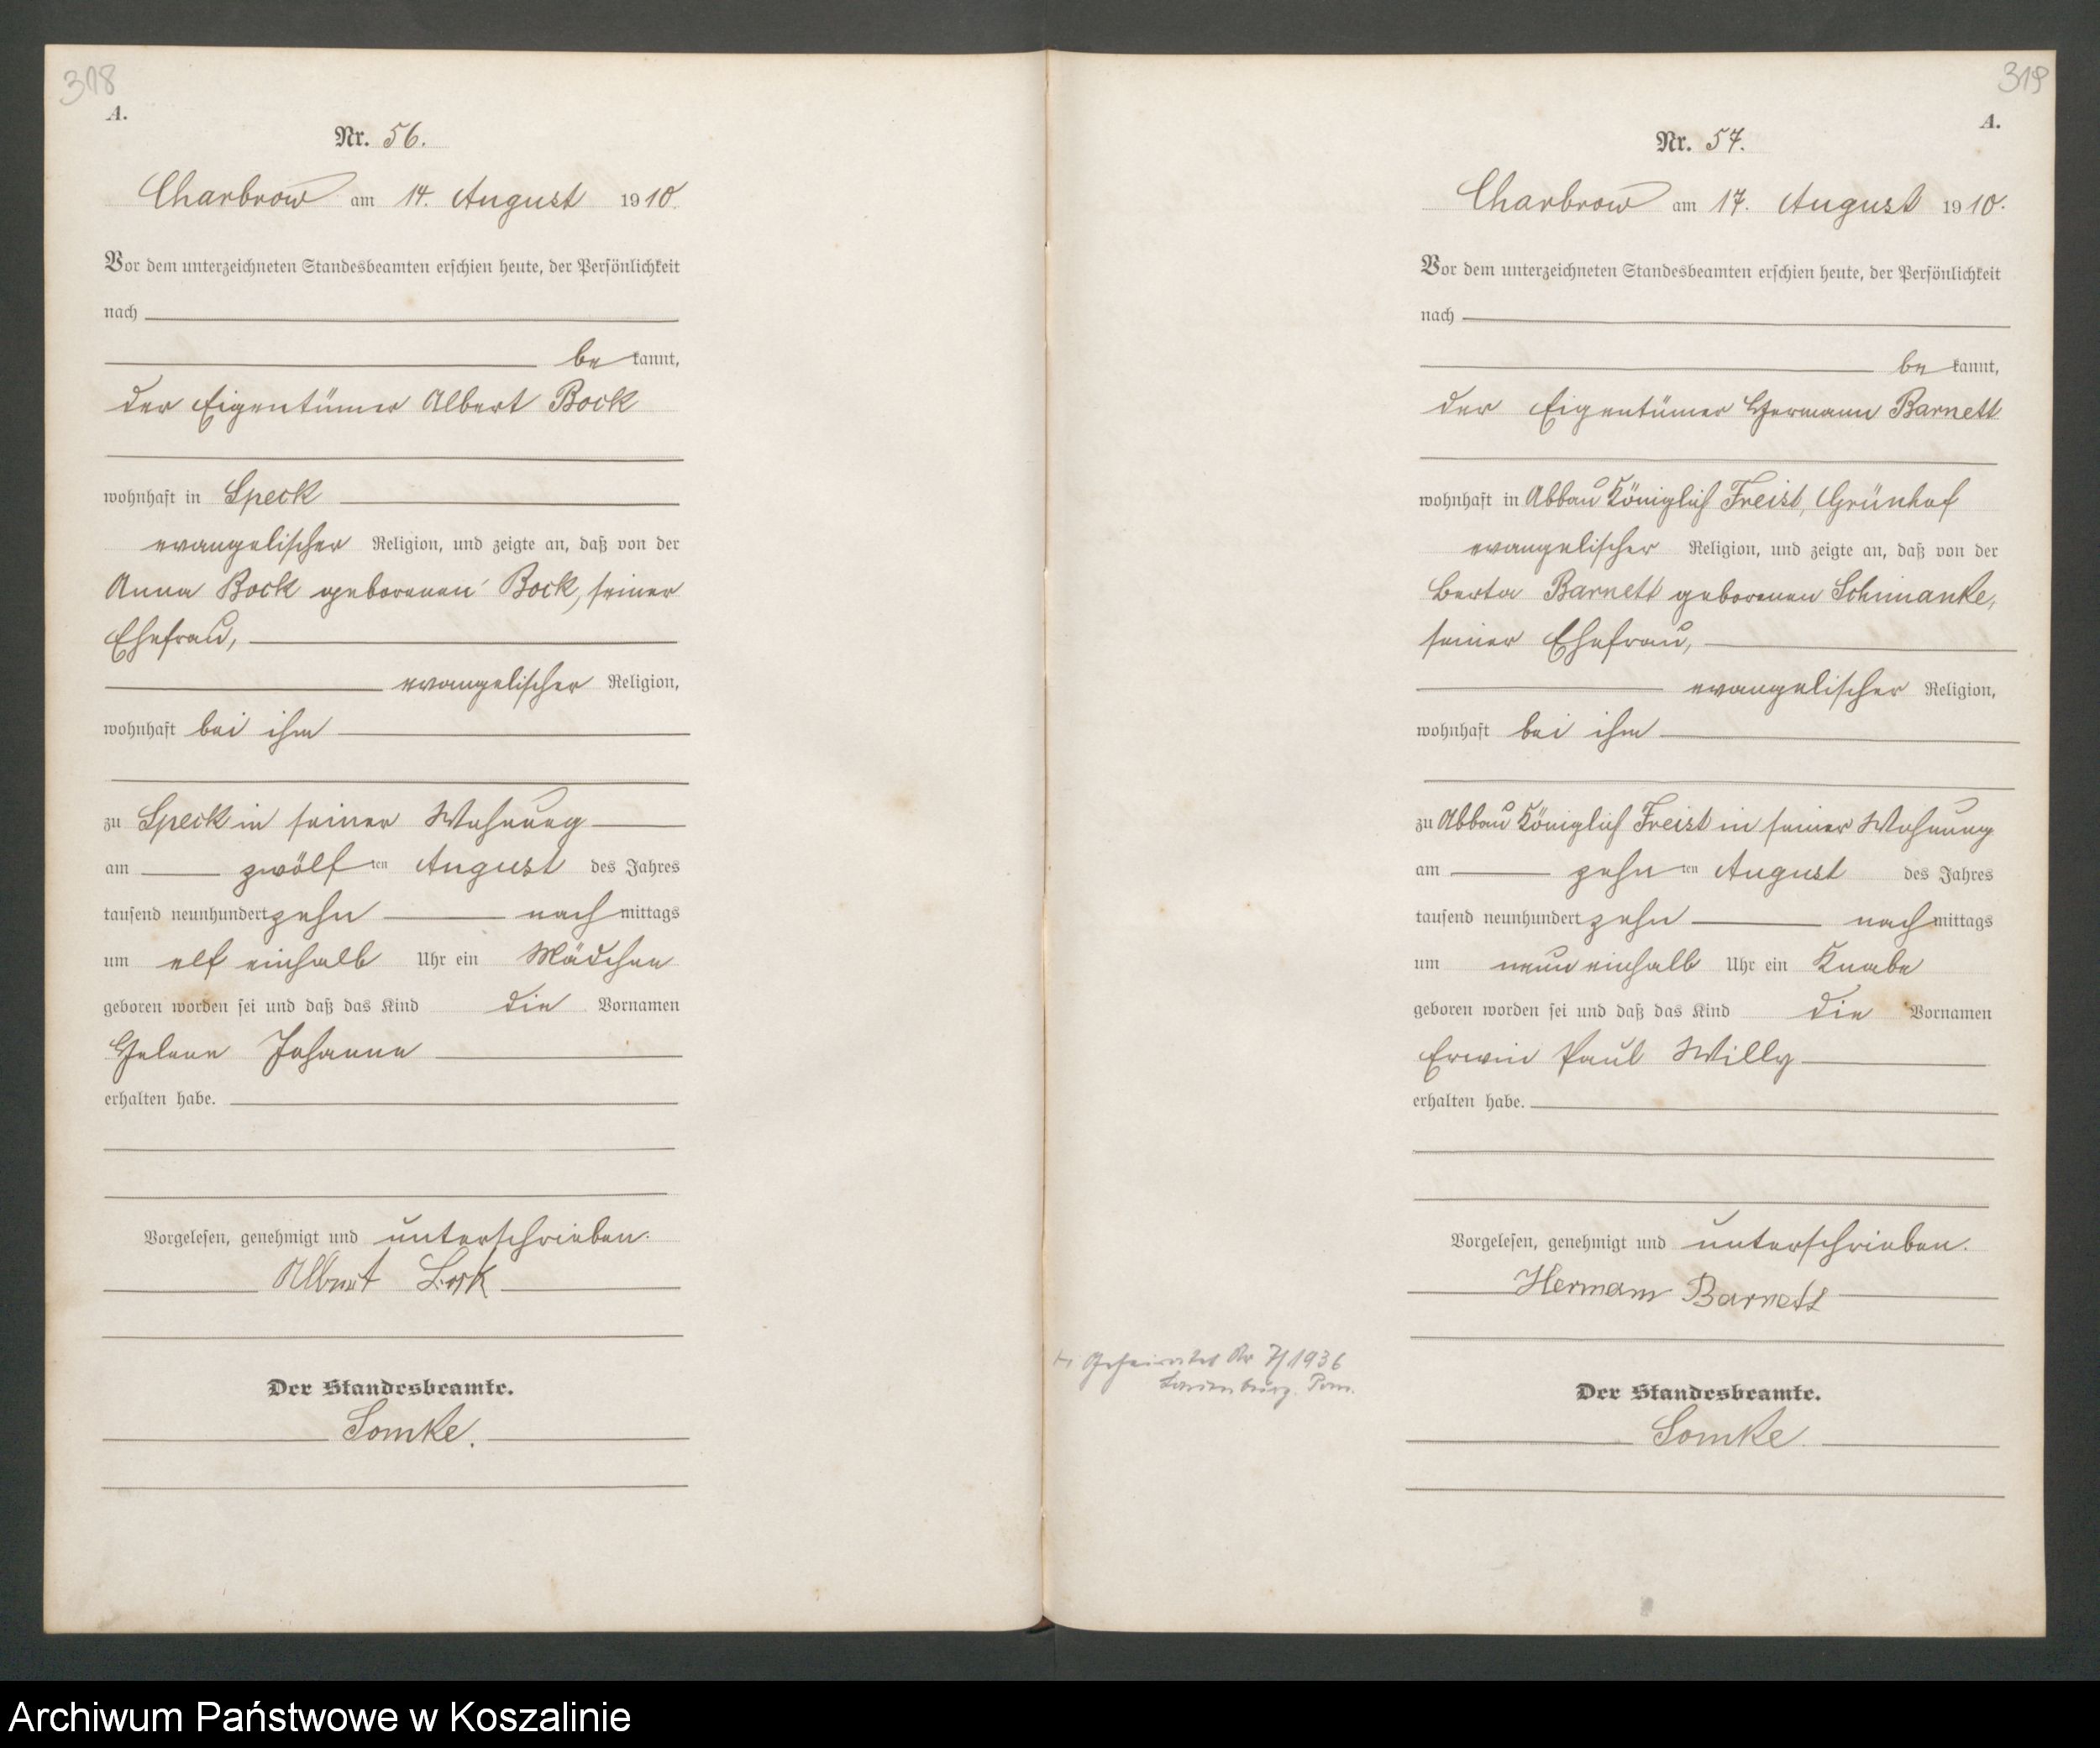 318
A.
Nr. 56.
Charbrow am 14. August 1910.
Vor dem unterzeichneten Standesbeamten erschien heute, der Persönlichkeit
nach
be kannt,
der Eigentümer Albert Bock
wohnhaft in Speck
evangelischer Religion, und zeigte an, daß von der
Anna Bock geborenen Bock, seiner
Ehefrau,
evangelischer Religion,
wohnhaft bei ihm
zu Speck in seiner Wohnung
am zwölf ten August des Jahres
tausend neunhundert zehn nach mittags
um elf einhalb Uhr ein Mädchen
geboren worden sei und daß das Kind die Vornamen
Helene Johanne
erhalten habe.
Vorgelesen, genehmigt und unterschrieben.
Albert Bock
Der Standesbeamte.
Somke.
319
A.
Nr. 57.
Charbrow am 17. August 1910.
Vor dem unterzeichneten Standesbeamten erschien heute, der Persönlichkeit
nach
be kannt,
der Eigentümer Hermann Barnett
wohnhaft in Abbau Königlich Freist, Grünhof
evangelischer Religion, und zeigte an, daß von der
Berta Barnett geborenen Schimanke,
seiner Ehefrau,
evangelischer Religion,
wohnhaft bei ihm
zu Abbau Königlich Freist in seiner Wohnung
am zehn ten August des Jahres
tausend neunhundert zehn nach mittags
um neun einhalb Uhr ein Knabe
geboren worden sei und daß das Kind die Vornamen
Erwin Paul Willy
erhalten habe.
Vorgelesen, genehmigt und unterschrieben.
Hermann Barnett
Geheiratet Nr 7/1936
Lauenburg. Pom.
Der Standesbeamte.
Somke.
Archiwum Państwowe w Koszalinie